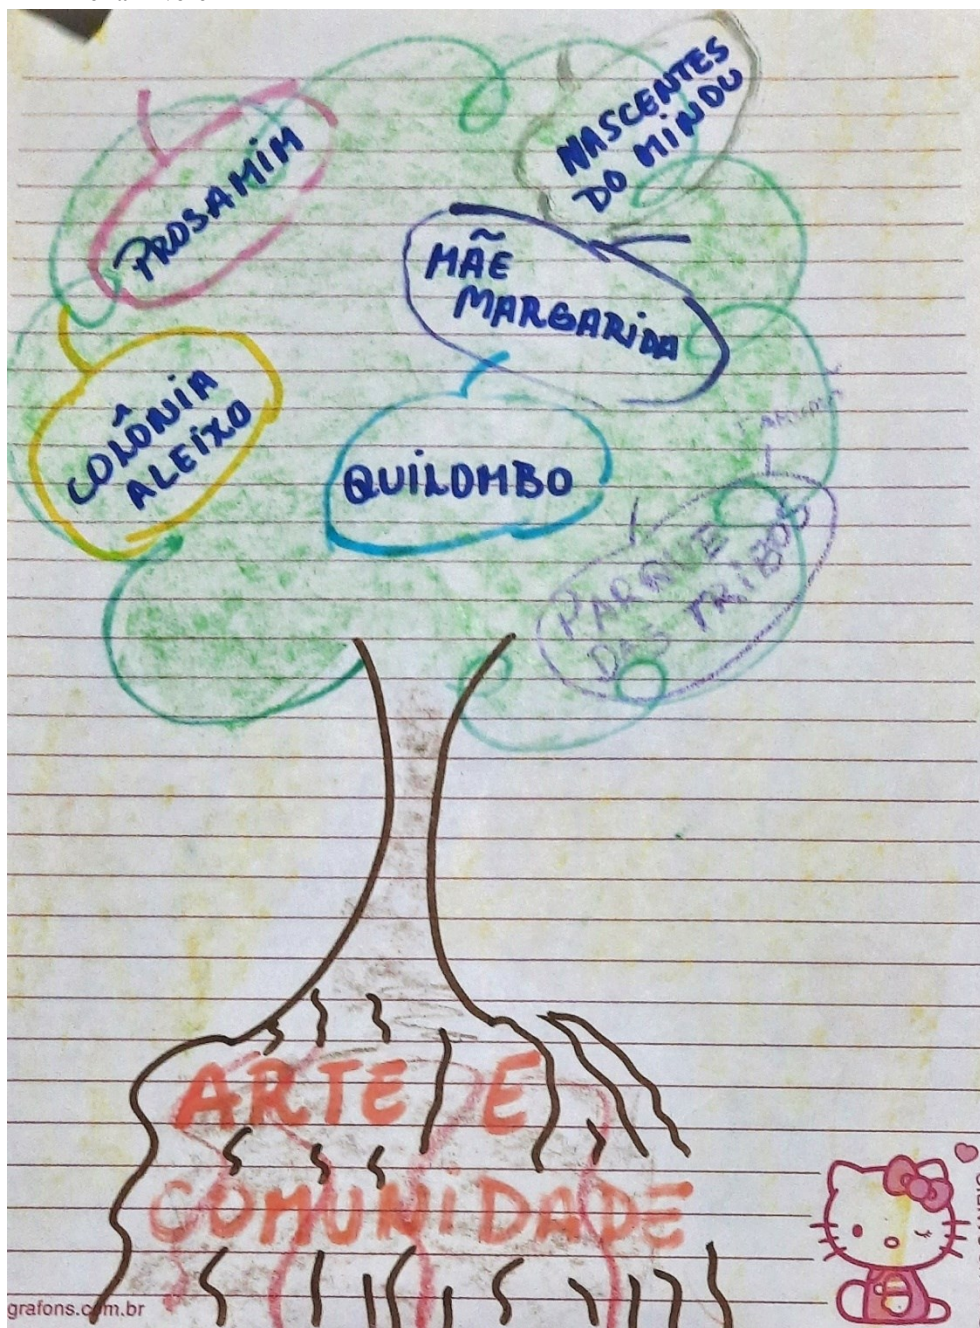 NASCENTES
DO MINDU
PROSAMIM
MÃE
MARGARIDA
COLÔNIA
ALEIXO
QUILOMBO
PARQUE
DAS TRIBOS
ARTE E
COMUNIDADE
grafons.com.br